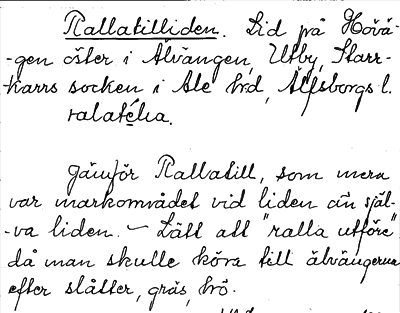 Rallatilliden. Lid på Hövä-
-gen öster i Älvängen, Utby, Starr-
-kärrs socken i Ale hrd, Älfsborgs l.
ralatélia.
Gämför Rallatill, som mera
var markområdet vid liden än själ-
-va liden. - Lätt att "ralla utföre"
då man skulle köra till älvängerna
efter slåtter, gräs, hö.